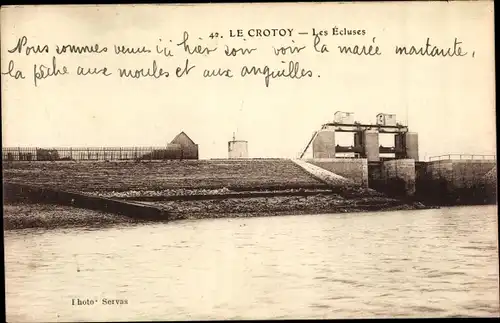 42. LE CROTOY — Les Écluses
Nous sommes venus ici hier soir voir la marée montante,
la pêche aux moules et aux anguilles.
Photo Servas